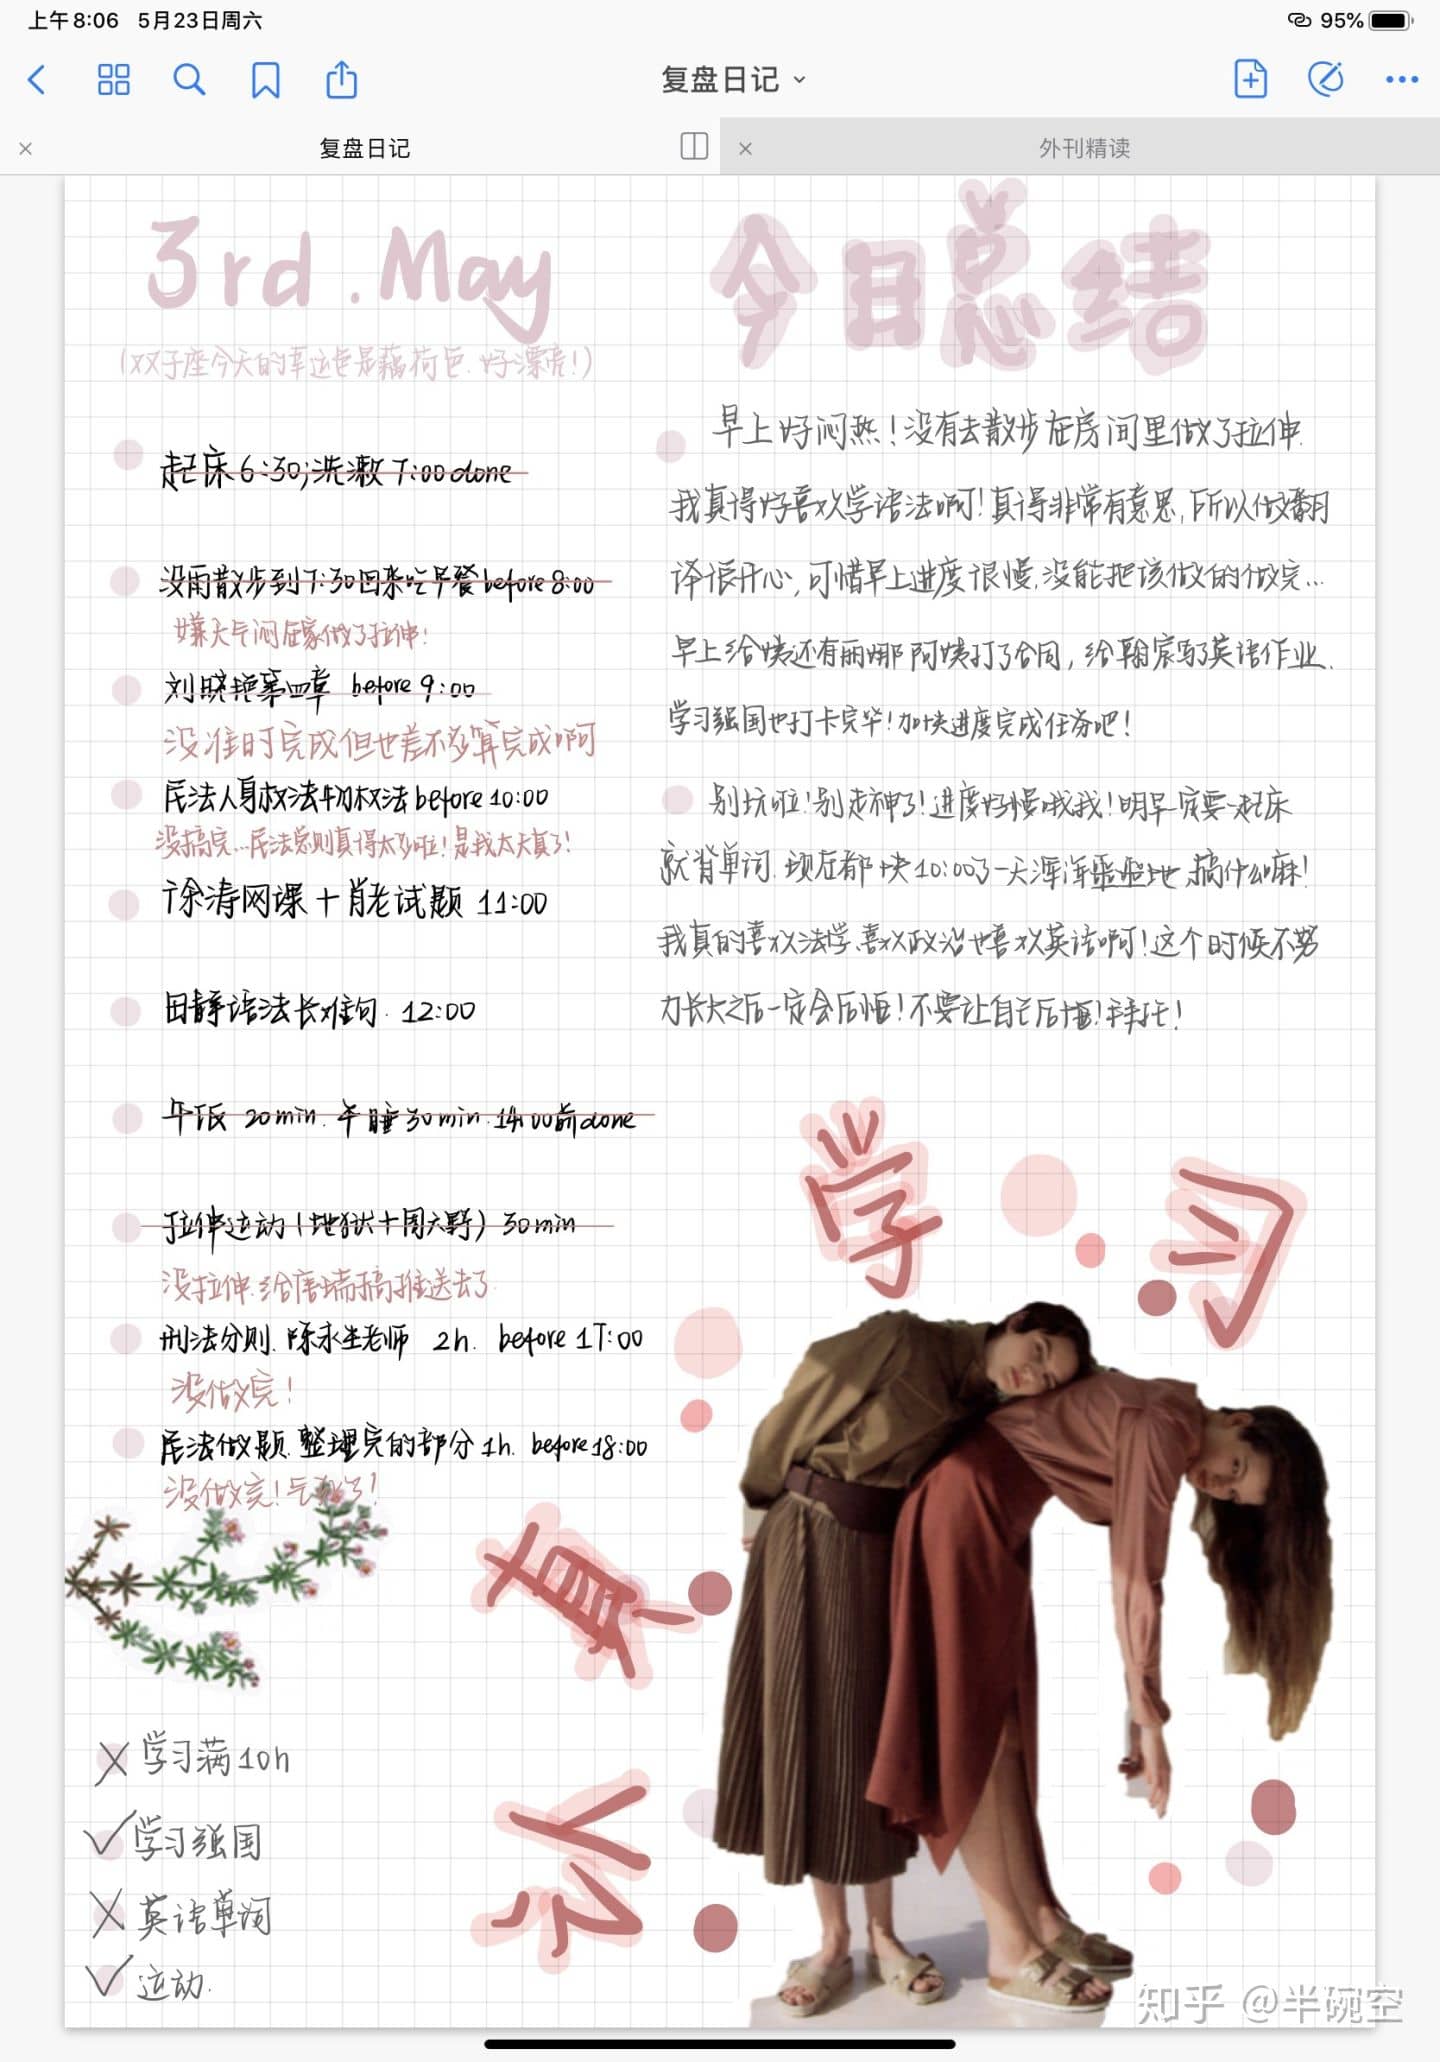 上午8:06 5月23日周六
95%
复盘日记
复盘日记
外刊精读
3rd.May
(双子座今天的幸运色是藕荷色.好漂亮!)
起床6:30;洗漱7:00done
没雨散步到7:30回来吃早餐before8:00
嫌天气闷在家做了拉伸!
刘晓艳第四章 before 9:00
没准时完成但也差不多算完成啊
民法人身权法物权法before 10:00
没搞完...民法总则真得太多啦!是我太天真了!
徐涛网课+肖老试题 11:00
田静语法长难句. 12:00
午饭 20min. 午睡30min.14:00前done
拉伸运动(地狱十周六野)30min
没拉伸.给唐瑞搞推送去了.
刑法分则.陈永生老师 2h. before 17:00
没做完!
民法做题.整理完的部分1h. before18:00
没做完!气死了!
学习满10h
学习强国
英语单词
运动.
今日总结
早上好闷热!没有去散步在房间里做了拉伸.
我真得好喜欢学语法啊!真得非常有意思,所以做翻
译很开心,可惜早上进度很慢,没能把该做的做完...
早上给姨还有丽娜阿姨打了合同,给翰宸写了英语作业.
学习强国也打卡完毕!加快进度完成任务吧!
别坑啦!别走神了!进度好慢哦我!明早一定要一起床
就背单词.现在都快10:00了一天浑浑噩噩地.搞什么嘛!
我真的喜欢法学、喜欢政治也喜欢英语啊!这个时候不努
力长大之后一定会后悔!不要让自己后悔!拜托!
认真学习
知乎 @半碗空